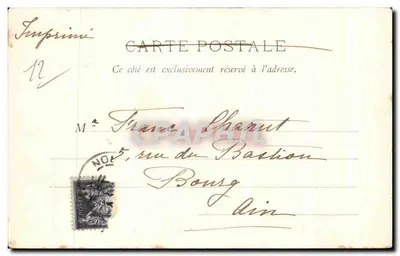 Imprimé
CARTE POSTALE
12
Ce côté est exclusivement réservé à l'adresse.
Mr Franc Chanut
5, rue du Bastion
Bourg
Ain